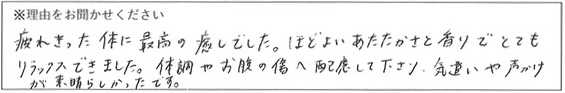 ※理由をお聞かせください
疲れきった体に最高の癒しでした。ほどよいあたたかさと香りでとても
リラックスできました。体調やお腹の傷へ配慮して下さり、気遣いや声かけ
が素晴らしかったです。